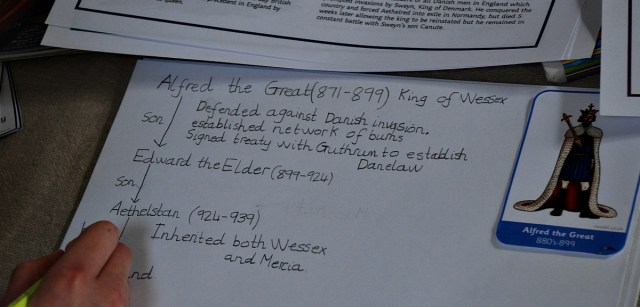 of all Danish men in England which
invasions by Sweyn, King of Denmark. He conquered the
country and forced Aethelred into exile in Normandy, but died 5
weeks later allowing the king to be reinstated but he remained in
constant battle with Sweyn's son Canute.
British
precedent in England by
queen.
Alfred the Great (871-899) King of Wessex
Son
Defended against Danish invasion.
established network of burhs
Signed treaty with Guthrum to establish
Danelaw
Edward the Elder (899-924)
Son
Aethelstan (924-939)
Inherited both Wessex
and Mercia
Alfred the Great
880's-899